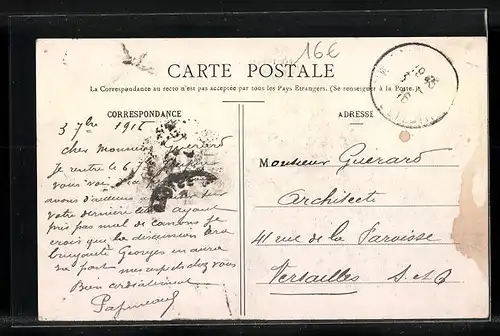 16€
CARTE POSTALE
La Correspondance au recto n'est pas acceptée par tous les Pays Etrangers. (Se renseigner à la Poste.)
CORRESPONDANCE
3 7bre 191
cher Monsieur Guerard
Je rentre le 6 7bre
vous voir
avons d'ailleurs
votre dernière ayant
pris pas mal de canons je
crois que la discussion sera
bruyante Georges en aura
sa part mes respects chez vous
Bien cordialement
ADRESSE
Monsieur Guérard
Architecte
41 rue de la Paroisse
Versailles S. et O